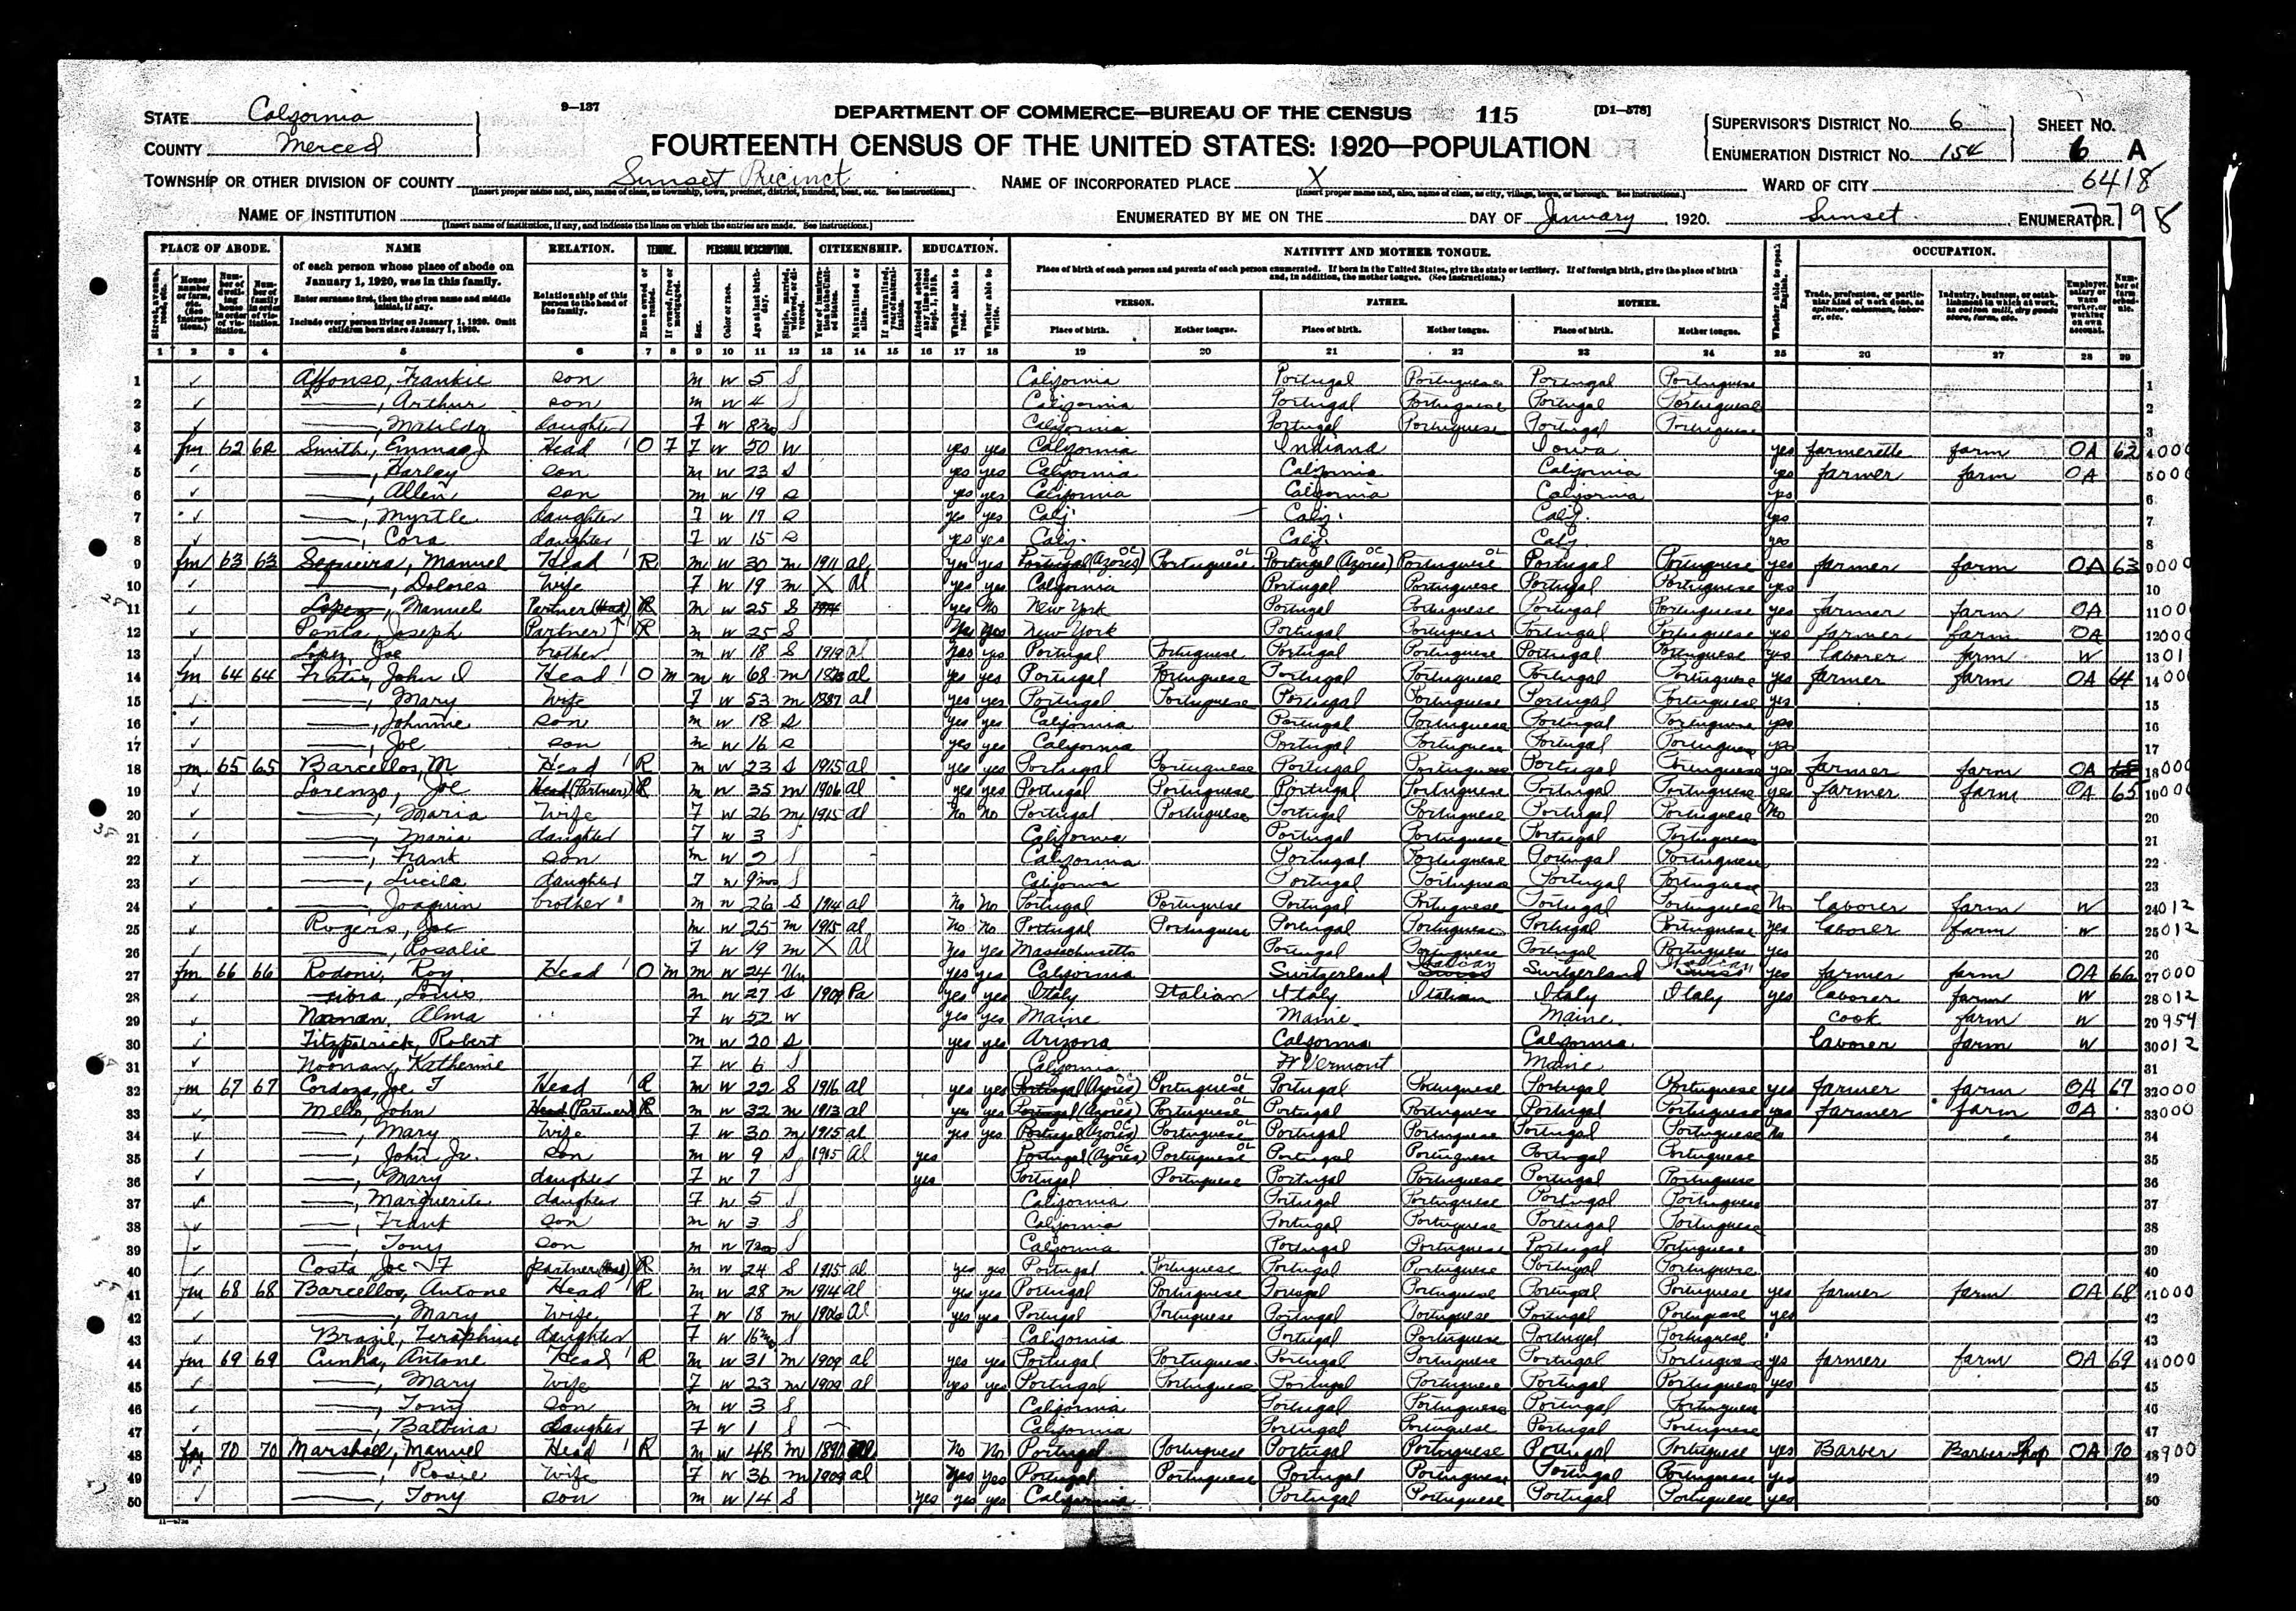 9—137
DEPARTMENT OF COMMERCE—BUREAU OF THE CENSUS 115 [D1—578]
STATE California
COUNTY Merced
FOURTEENTH CENSUS OF THE UNITED STATES: 1920—POPULATION
SUPERVISOR'S DISTRICT No. 6 SHEET No.
ENUMERATION DISTRICT No. 154 6 A
TOWNSHIP OR OTHER DIVISION OF COUNTY Sunset Precinct NAME OF INCORPORATED PLACE X WARD OF CITY 6418
[Insert proper name and, also, name of class, as township, town, precinct, district, hundred, beat, etc. See instructions.] [Insert proper name and, also, name of class, as city, village, town, or borough. See instructions.]
NAME OF INSTITUTION ENUMERATED BY ME ON THE DAY OF January, 1920. Sunset ENUMERATOR. 7798
[Insert name of institution, if any, and indicate the lines on which the entries are made. See instructions.]
PLACE OF ABODE. NAME RELATION. TENURE. PERSONAL DESCRIPTION. CITIZENSHIP. EDUCATION. NATIVITY AND MOTHER TONGUE. OCCUPATION.
of each person whose place of abode on January 1, 1920, was in this family.
Enter surname first, then the given name and middle initial, if any.
Include every person living on January 1, 1920. Omit children born since January 1, 1920.
Relationship of this person to the head of the family.
Place of birth of each person and parents of each person enumerated. If born in the United States, give the state or territory. If of foreign birth, give the place of birth and, in addition, the mother tongue. (See instructions.)
PERSON. FATHER. MOTHER.
Place of birth. Mother tongue. Place of birth. Mother tongue. Place of birth. Mother tongue.
1 2 3 4 5 6 7 8 9 10 11 12 13 14 15 16 17 18 19 20 21 22 23 24 25 26 27 28 29
1 Affonso, Frankie son m w 5 S California Portugal Portuguese Portugal Portuguese 1
2 ——, Arthur son m w 4 S California Portugal Portuguese Portugal Portuguese 2
3 ——, Matilda daughter F w S California Portugal Portuguese Portugal Portuguese 3
4 fm 62 62 Smith, Emma J Head O F F w 50 W yes yes California Indiana Iowa yes farmerette farm OA 62 4 000
5 ——, Harley son m w 23 S yes yes California California California yes farmer farm OA 5 000
6 ——, Allen son m w 19 S yes yes California California California yes 6
7 ——, Myrtle daughter F w 17 S yes yes Calif. Calif. Calif. yes 7
8 ——, Cora daughter F w 15 S yes yes Calif. Calif. Calif. yes 8
9 fm 63 63 Sequeira, Manuel Head R m w 30 m 1911 al yes yes Portugal (Azores) Portuguese Portugal (Azores) Portuguese Portugal Portuguese yes farmer farm OA 63 9 000
10 ——, Dolores Wife F w 19 m X al yes yes California Portugal Portuguese Portugal Portuguese yes 10
11 Lopez, Manuel Partner (Head) R m w 25 S yes No New York Portugal Portuguese Portugal Portuguese yes farmer farm OA 11 000
12 Ponta, Joseph Partner R m w 25 S yes yes New York Portugal Portuguese Portugal Portuguese yes farmer farm OA 12 000
13 Lopez, Joe brother m w 18 S 1919 al yes yes Portugal Portuguese Portugal Portuguese Portugal Portuguese yes laborer farm W 13 01
14 fm 64 64 John Head O m m w 68 m al yes yes Portugal Portuguese Portugal Portuguese Portugal Portuguese yes farmer farm OA 64 14 00
15 ——, Mary Wife F w 53 m 1887 al yes yes Portugal Portuguese Portugal Portuguese Portugal Portuguese yes 15
16 ——, Johnnie son m w 18 S yes yes California Portugal Portuguese Portugal Portuguese yes 16
17 ——, Joe son m w 16 S yes yes California Portugal Portuguese Portugal Portuguese yes 17
18 fm 65 65 Barcellos, M Head R m w 23 S 1915 al yes yes Portugal Portuguese Portugal Portuguese Portugal Portuguese yes farmer farm OA 18 000
19 Lorenzo, Joe Head (Partner) R m w 35 m 1906 al yes yes Portugal Portuguese Portugal Portuguese Portugal Portuguese yes farmer farm OA 65 19 000
20 ——, Maria Wife F w 26 m 1915 al No No Portugal Portuguese Portugal Portuguese Portugal Portuguese No 20
21 ——, Maria daughter F w 3 S California Portugal Portuguese Portugal Portuguese 21
22 ——, Frank son m w 2 S California Portugal Portuguese Portugal Portuguese 22
23 ——, Lucila daughter F w S California Portugal Portuguese Portugal Portuguese 23
24 ——, Joaquin brother m w 26 S 1914 al No No Portugal Portuguese Portugal Portuguese Portugal Portuguese No laborer farm W 24 012
25 Rogers, Joe m w 25 m 1915 al No No Portugal Portuguese Portugal Portuguese Portugal Portuguese yes laborer farm W 25 012
26 ——, Rosalie F w 19 m X al yes yes Massachusetts Portugal Portuguese Portugal Portuguese yes 26
27 fm 66 66 Rodoni, Roy Head O m m w 24 Un yes yes California Switzerland Italian Switzerland Italian yes farmer farm OA 66 27 000
28 Louis m w 27 S 1909 Pa yes yes Italy Italian Italy Italian Italy Italy yes laborer farm W 28 012
29 Noonan, Alma F w 52 W yes yes Maine Maine Maine cook farm W 29 954
30 Fitzpatrick, Robert m w 20 S yes yes Arizona California California laborer farm W 30 012
31 Noonan, Katherine F w 6 S California Vermont Maine 31
32 fm 67 67 Cordoza, Joe T Head R m w 22 S 1916 al yes yes Portugal (Azores) Portuguese Portugal Portuguese Portugal Portuguese yes farmer farm OA 67 32 000
33 Mello, John Head (Partner) R m w 32 m 1913 al yes yes Portugal (Azores) Portuguese Portugal Portuguese Portugal Portuguese yes farmer farm OA 33 000
34 ——, Mary Wife F w 30 m 1915 al yes yes Portugal (Azores) Portuguese Portugal Portuguese Portugal Portuguese No 34
35 ——, John Jr. son m w 9 S 1915 al yes Portugal (Azores) Portuguese Portugal Portuguese Portugal Portuguese 35
36 ——, Mary daughter F w 7 S yes Portugal Portuguese Portugal Portuguese Portugal Portuguese 36
37 ——, Marguerite daughter F w 5 S California Portugal Portuguese Portugal Portuguese 37
38 ——, Frank son m w 3 S California Portugal Portuguese Portugal Portuguese 38
39 ——, Tony son m w S California Portugal Portuguese Portugal Portuguese 39
40 Costa, Joe F partner (Head) R m w 24 S 1915 al yes yes Portugal Portuguese Portugal Portuguese Portugal Portuguese 40
41 fm 68 68 Barcellos, Antone Head R m w 28 m 1914 al yes yes Portugal Portuguese Portugal Portuguese Portugal Portuguese yes farmer farm OA 68 41 000
42 ——, Mary Wife F w 18 m 1906 al yes yes Portugal Portuguese Portugal Portuguese Portugal Portuguese yes 42
43 Brazil, daughter F w S California Portugal Portuguese Portugal Portuguese 43
44 fm 69 69 Cunha, Antone Head R m w 31 m 1909 al yes yes Portugal Portuguese Portugal Portuguese Portugal Portuguese yes farmer farm OA 69 44 000
45 ——, Mary Wife F w 23 m 1909 al yes yes Portugal Portuguese Portugal Portuguese Portugal Portuguese yes 45
46 ——, Tony son m w 3 S California Portugal Portuguese Portugal Portuguese 46
47 ——, Balbina daughter F w 1 S California Portugal Portuguese Portugal Portuguese 47
48 fm 70 70 Marshall, Manuel Head R m w 48 m No No Portugal Portuguese Portugal Portuguese Portugal Portuguese yes Barber Barber Shop OA 70 48 900
49 ——, Rosie Wife F w 36 m al yes yes Portugal Portuguese Portugal Portuguese Portugal Portuguese yes 49
50 ——, Tony son m w 14 S yes yes yes California Portugal Portuguese Portugal Portuguese yes 50